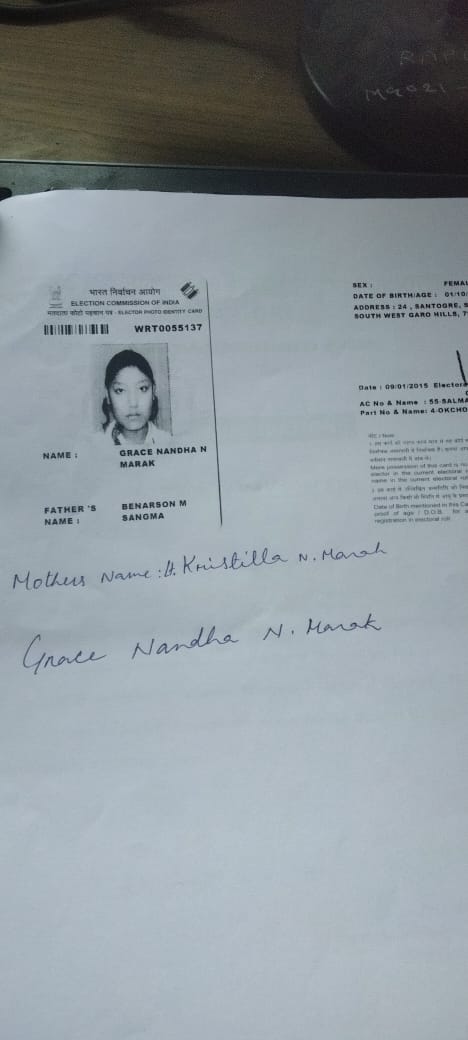 RAPI
M9021-
भारत निर्वाचन आयोग
ELECTION COMMISSION OF INDIA
मतदाता फोटो पहचान पत्र - ELECTOR PHOTO IDENTITY CARD
WRT0055137
NAME : GRACE NANDHA N
MARAK
FATHER 'S BENARSON M
NAME : SANGMA
SEX : FEMAL
DATE OF BIRTH/AGE : 01/10
ADDRESS : 24 , SANTOGRE, S
SOUTH WEST GARO HILLS, 7
Date : 09/01/2015 Electora
AC No & Name : 55-SALMA
Part No & Name: 4-OKCHO
नोट / Note
Mere possession of this card is no
elector in the current electoral r
name in the current electoral rol
Date of Birth mentioned in this Ca
proof of age / D.O.B. for a
registration in electoral roll.
Mothers Name : Lt. Kristilla N. Marak
Grace Nandha N. Marak